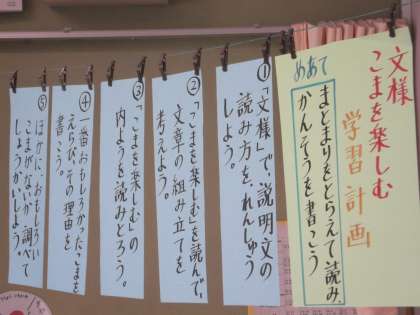 文様
こまを楽しむ
学習計画
めあて
まとまりをとらえて読み、
かんそうを書こう
①「文様」で、説明文の
読み方を、れんしゅう
しよう。
②「こまを楽しむ」を読んで、
文章の組み立てを
考えよう。
③「こまを楽しむ」の
内ようを読みとろう。
④一番おもしろかったこまを
えらび、その理由を
書こう。
⑤ほかに、おもしろい
こまがないか調べて
しょうかいしよう。